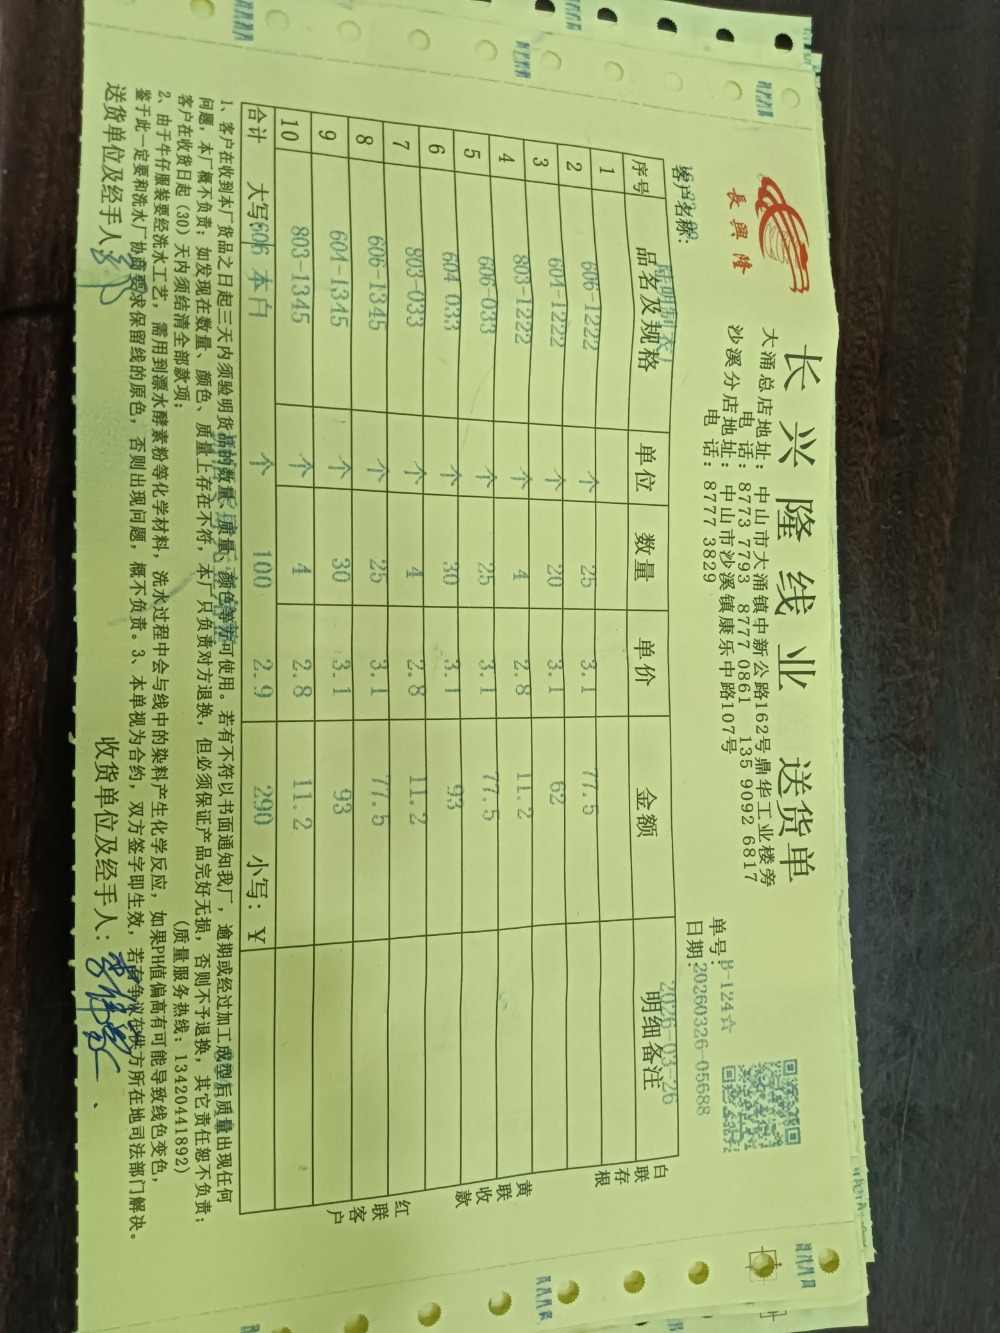 長興隆
长兴隆线业 送货单
大涌总店地址：中山市大涌镇中新公路162号鼎华工业楼旁
电话：8773 7793 8777 0861 135 9092 6817
沙溪分店地址：中山市沙溪镇康乐中路107号
电话：8777 3829
单号：B-124☆
日期：20260326-05688
2026-03-26
客户名称：
序号 品名及规格 单位 数量 单价 金额 明细备注
1 606-1222 个 25 3.1 77.5
2 604-1222 个 20 3.1 62
3 803-1222 个 4 2.8 11.2
4 606-033 个 25 3.1 77.5
5 604 033 个 30 3.1 93
6 803-033 个 4 2.8 11.2
7 606-1345 个 25 3.1 77.5
8 604-1345 个 30 3.1 93
9 803-1345 个 4 2.8 11.2
10 606 本白 个 100 2.9 290
合计 大写： 小写：￥
白联存根
黄联收款
红联客户
1、客户在收到本厂货品之日起三天内须验明货品的数量、质量、颜色等方可使用。若有不符以书面通知我厂，逾期或经过加工成型后质量出现任何
问题，本厂概不负责；如发现在数量、颜色、质量上存在不符，本厂只负责对方退换，但必须保证产品完好无损，否则不予退换，其它责任恕不负责；
客户在收货日起（30）天内须结清全部款项；
(质量服务热线：13420441892)
2、由于牛仔服装要经洗水工艺，需用到漂水酵素粉等化学材料，洗水过程中会与线中的染料产生化学反应，如果PH值偏高有可能导致线色变色，
鉴于此一定要和洗水厂协商要求保留线的原色，否则出现问题，概不负责。3、本单视为合约，双方签字即生效，若有争议在供方所在地司法部门解决。
送货单位及经手人：
收货单位及经手人：